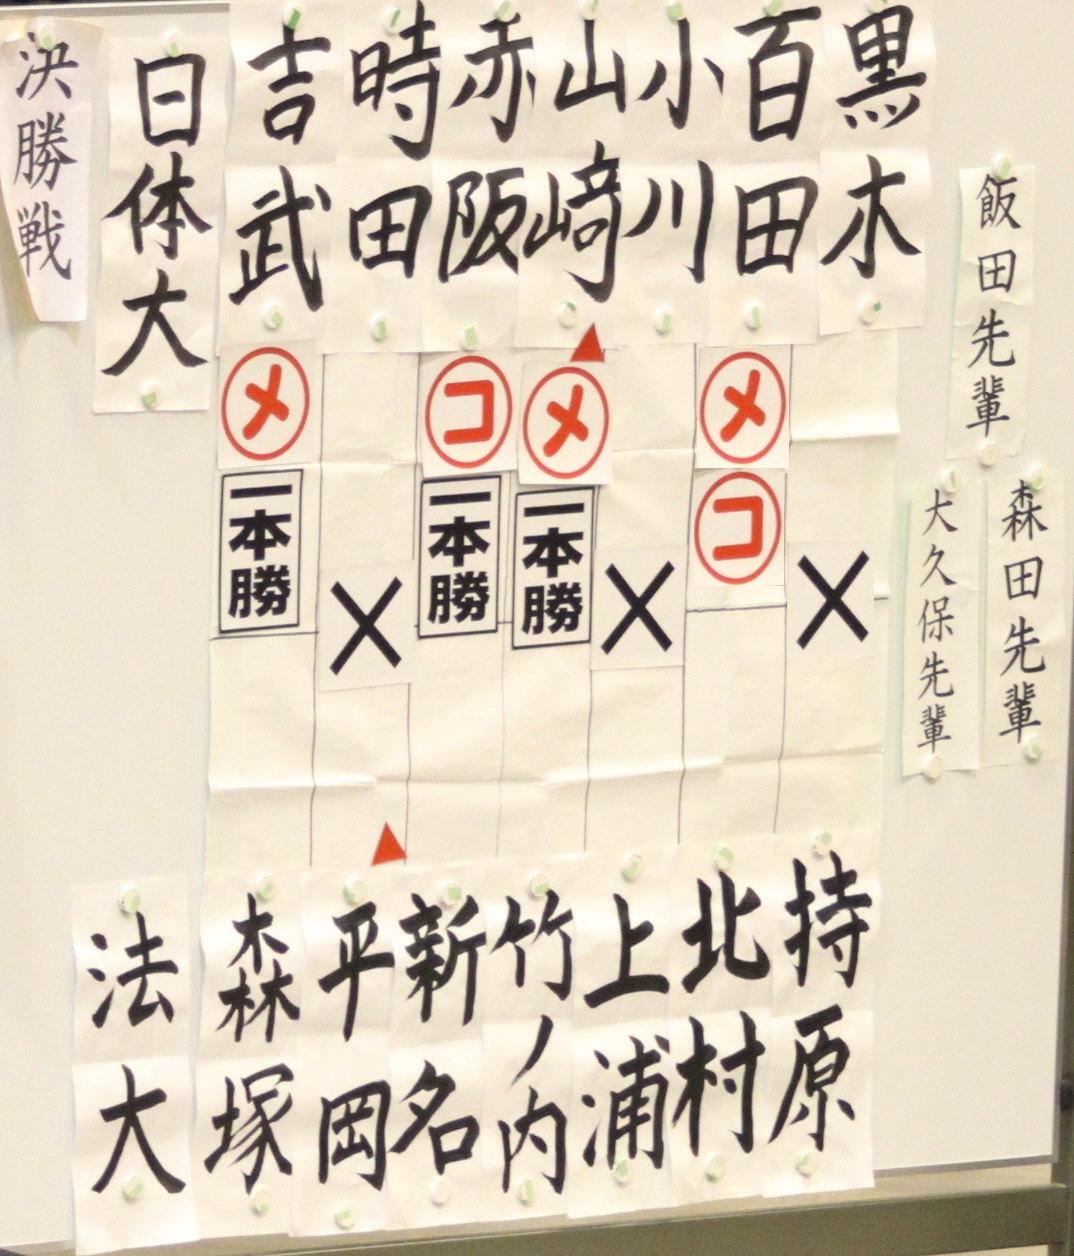 決勝戦
日体大
吉武
時田
赤阪
山﨑
小川
百田
黒木
飯田先輩
大久保先輩
森田先輩
メ
コ
メ
メ
コ
一本勝
一本勝
一本勝
法大
森塚
平岡
新名
竹ノ内
上浦
北村
持原